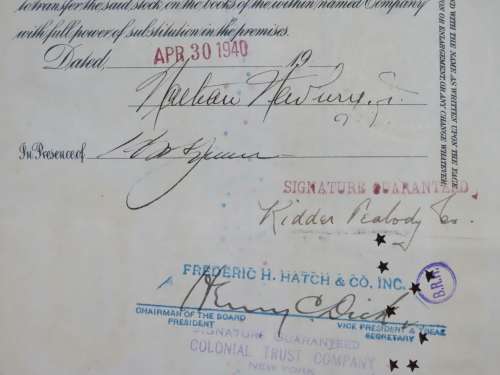 to transfer the said stock on the books of the within named Company
with full power of substitution in the premises.
Dated, APR 30 1940 19
In Presence of
SIGNATURE GUARANTEED
Kidder Peabody Co.
FREDERIC H. HATCH & CO., INC.
Henry C. Dick
CHAIRMAN OF THE BOARD
PRESIDENT
VICE PRESIDENT & TREAS
SECRETARY
SIGNATURE GUARANTEED
COLONIAL TRUST COMPANY
NEW YORK
B.R.H.
WITH THE NAME AS WRITTEN UPON THE FACE
ON OR ENLARGEMENT, OR ANY CHANGE WHATEVER.